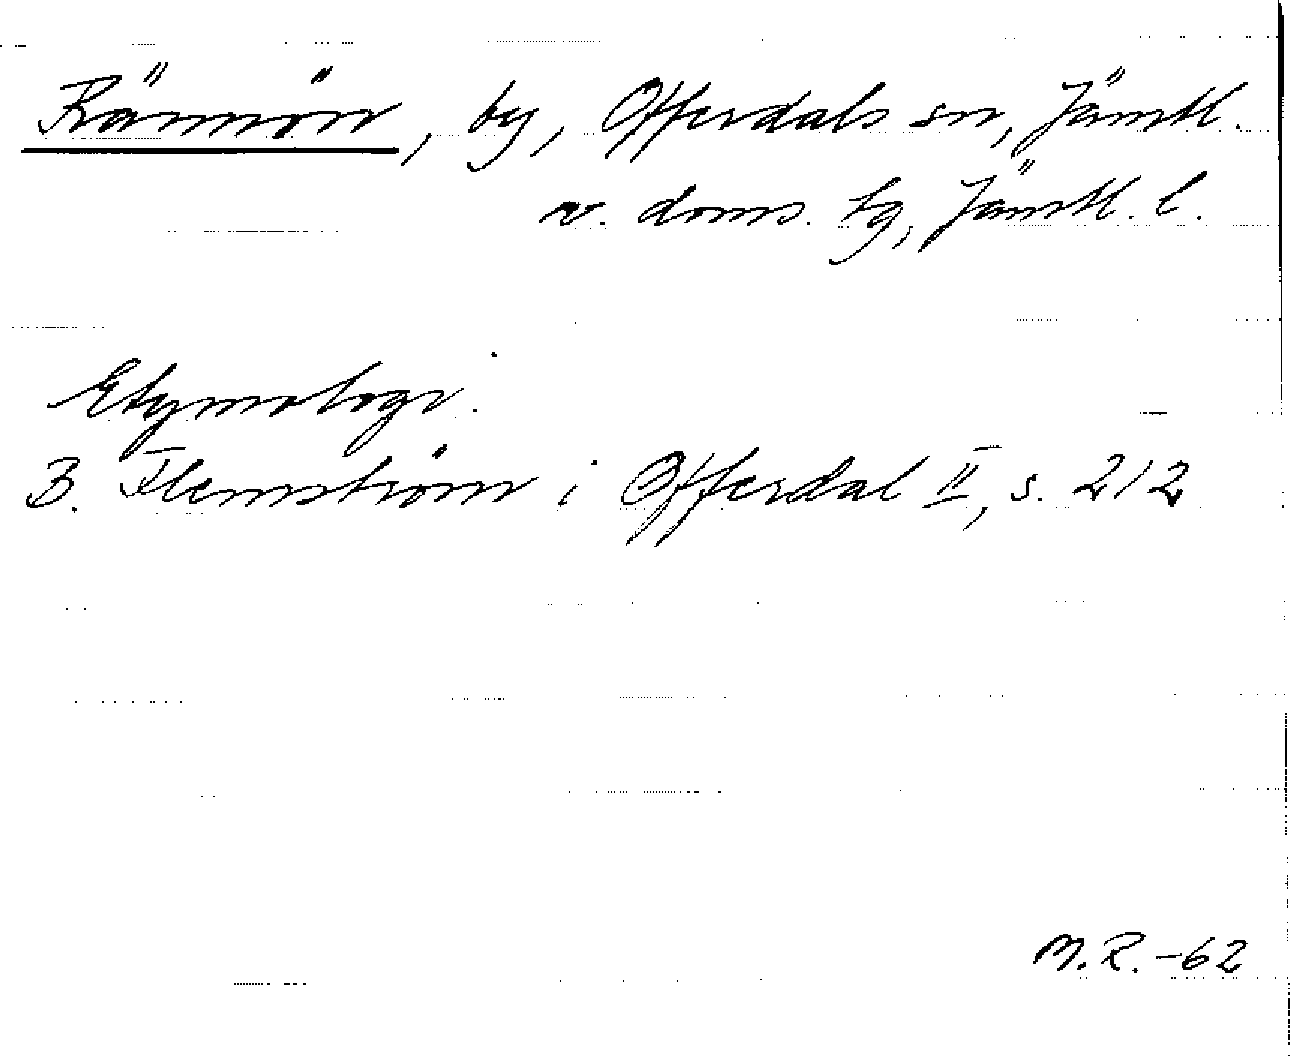 Rännön, by, Offerdals sn, Jämtl.
v. doms. tg, Jämtl. l.
Etymologi.
B. Flemström i Offerdal II, s. 212
M.R. -62